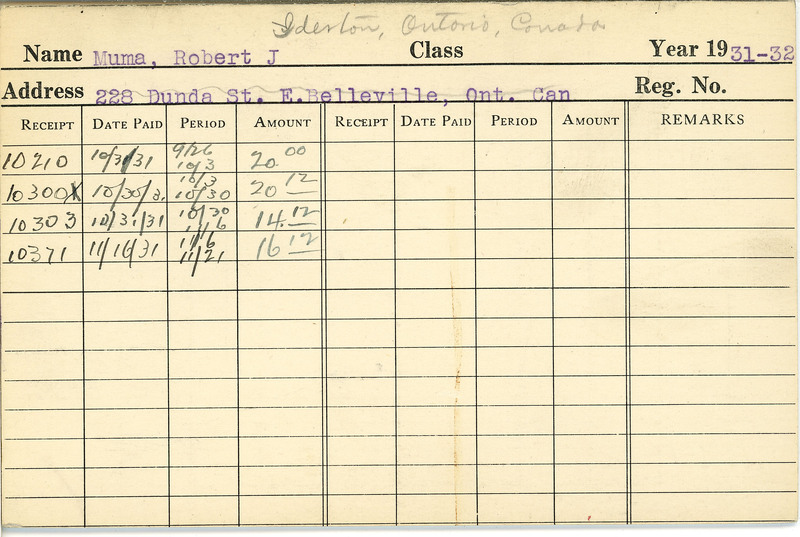 Ilderton, Ontario, Canada
Name Muma, Robert J Class Year 1931-32
Address 228 Dunda St. E.Belleville, Ont. Can Reg. No.
RECEIPT DATE PAID PERIOD AMOUNT RECEIPT DATE PAID PERIOD AMOUNT REMARKS
10210 10/3/31 9/26 10/3 20.00
10300X 10/30/3. 10/3 10/30 20 12
10303 10/31/31 10/30 11/6 14.12
10371 11/16/31 11/6 11/21 16 12